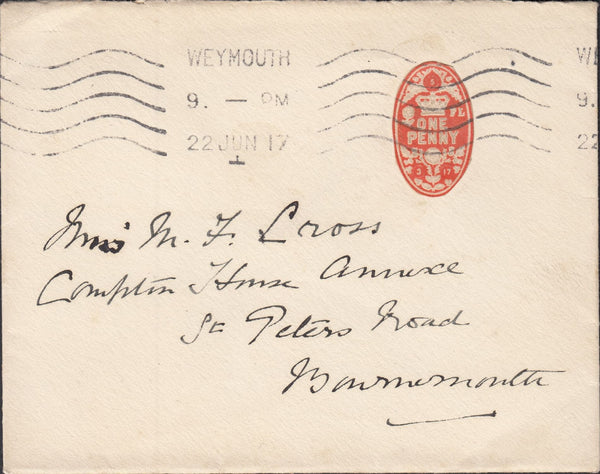 WEYMOUTH
9. — PM
22 JUN 17
WE
9.
22
ONE
PENNY
3 17
Miss M. F. Cross
Compton House Annexe
St Peters Road
Bournemouth